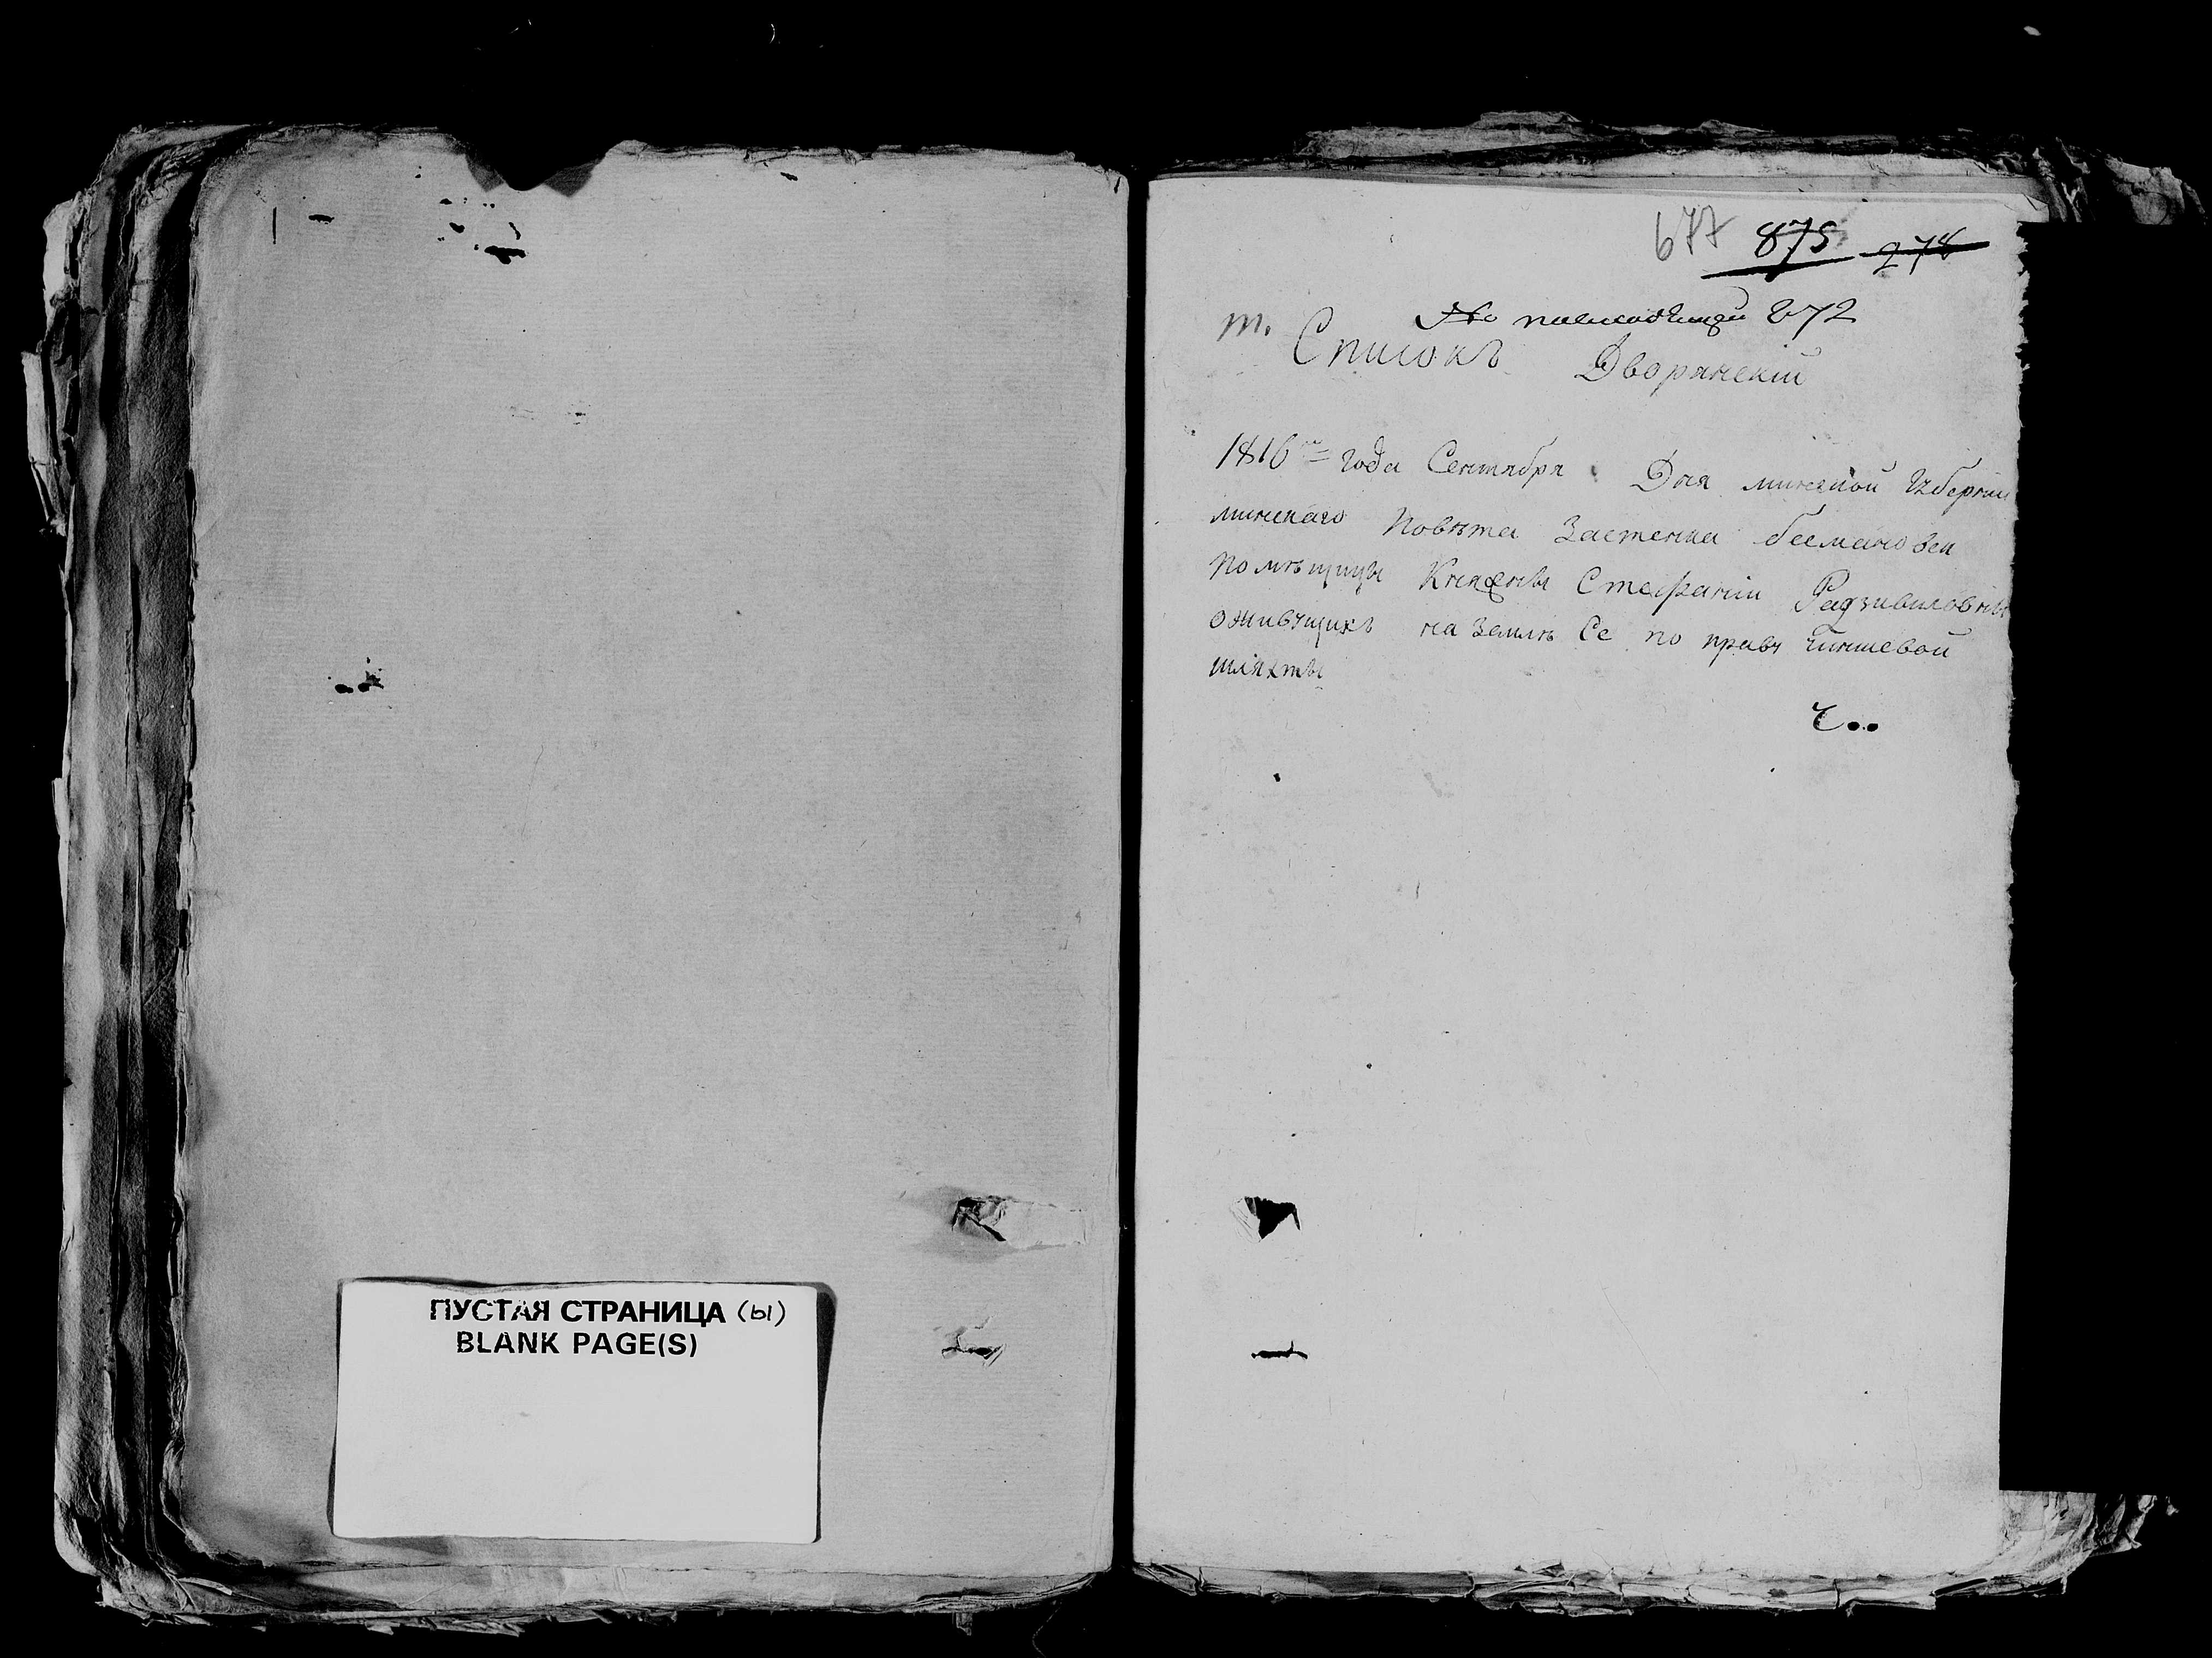 ПУСТАЯ СТРАНИЦА (ы)
BLANK PAGE(S)
677 875 278
№ 872
т. Списокъ Дворянскій
1816го года Сентября Дня минской Губерніи
минскаго Повѣта Застенка
Помѣщицы Княжны Стефаніи Радзивиловны
оживущихъ на Землѣ Ее по праву чиншевой
шляхты